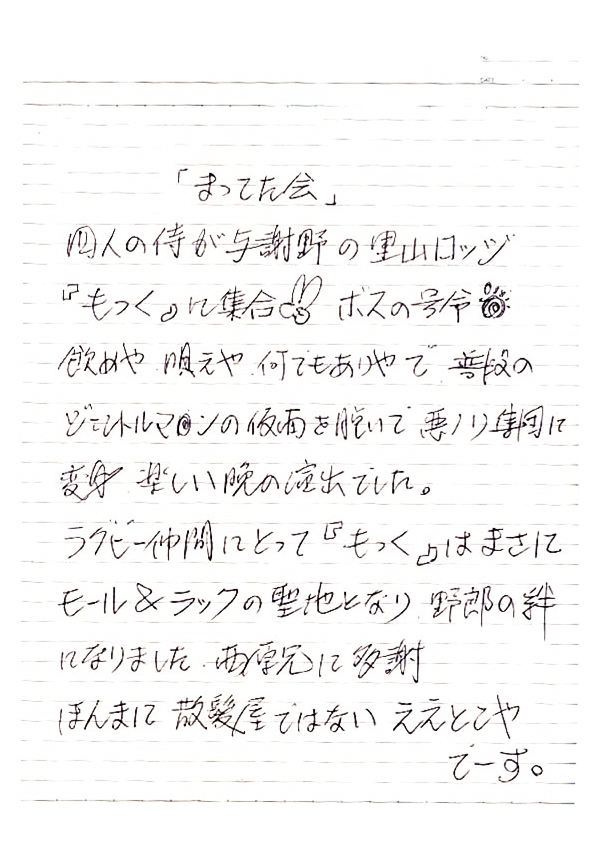 「まってた会」
四人の侍が与謝野の里山ロッジ
『もっく』に集合 ボスの号令
飲めや 唄えや 何でもありやで 普段の
ジェントルマンの仮面を脱いで 悪ノリ集団に
変身 楽しい晩の演出でした。
ラグビー仲間にとって『もっく』はまさに
モール&ラックの聖地となり 野郎の絆
になりました 西原兄に多謝
ほんまに 散髪屋ではない ええとこや
でーす。